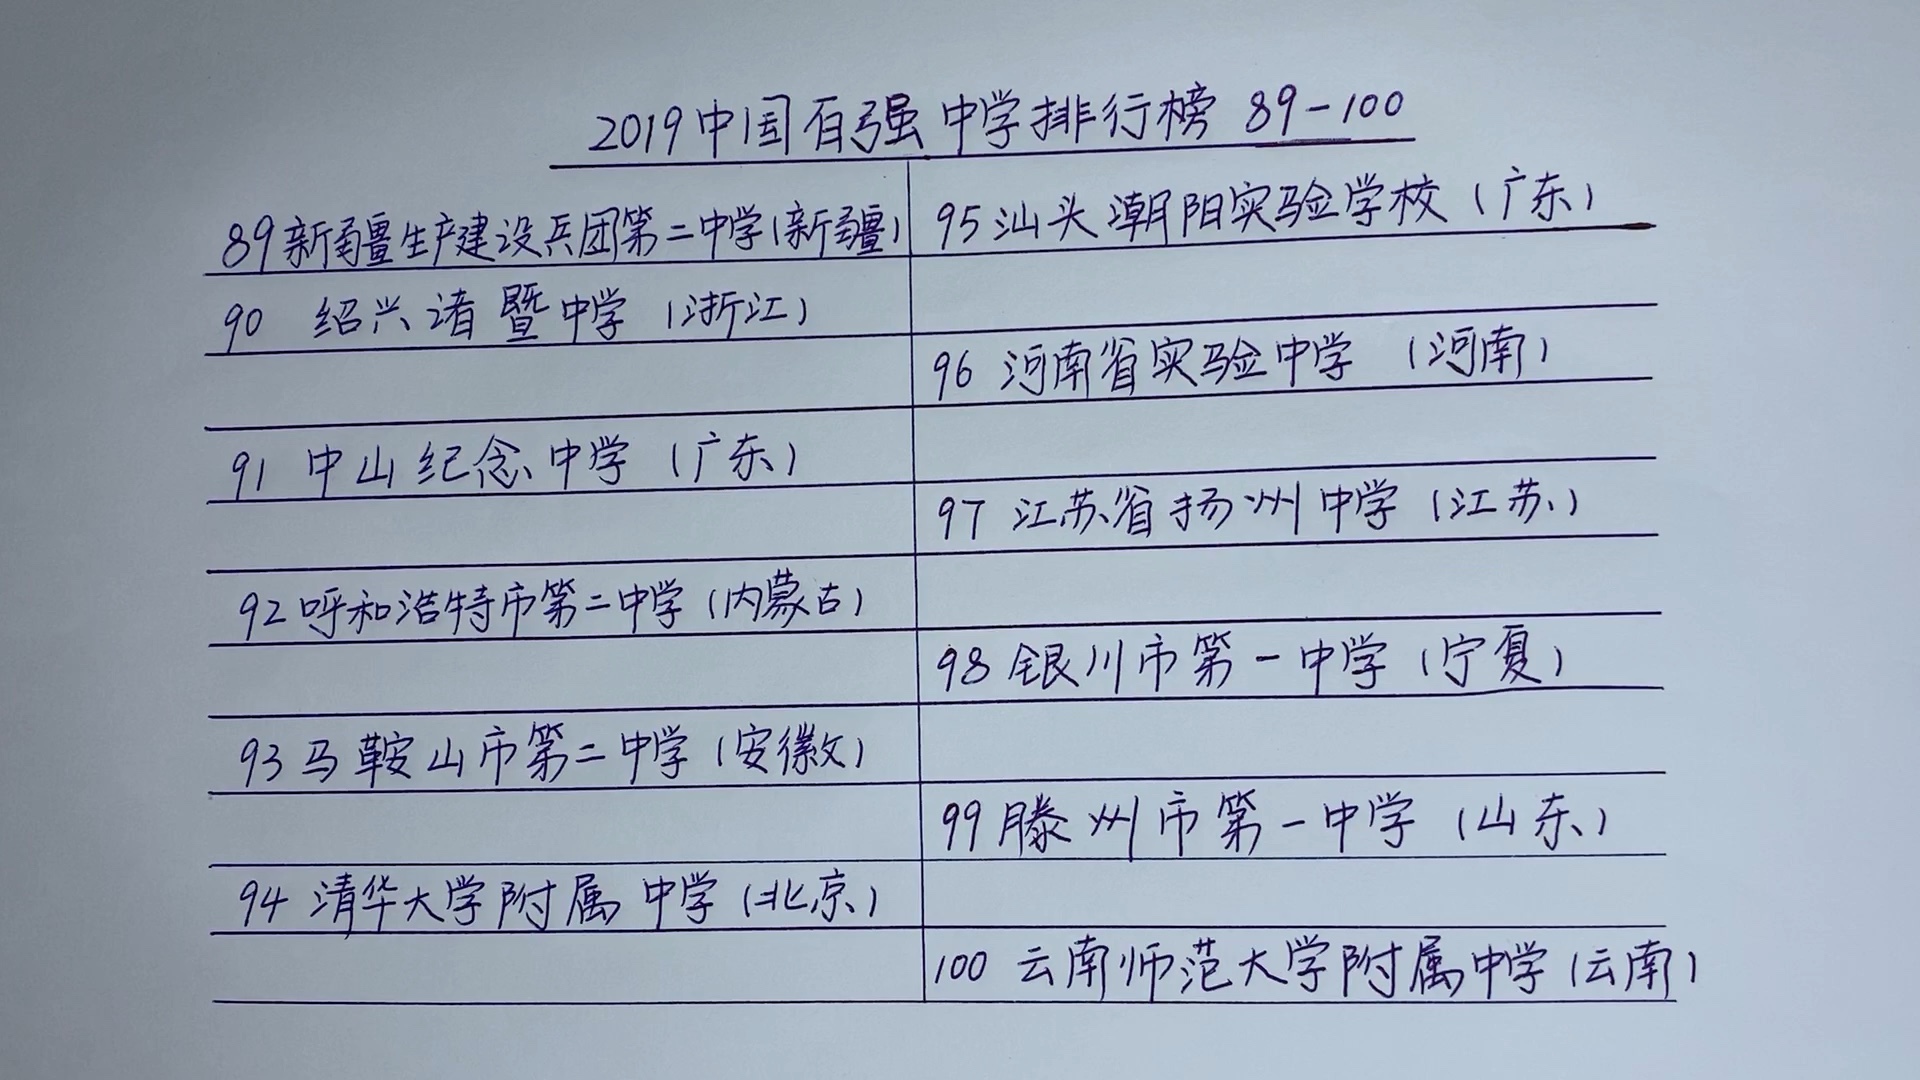 2019中国百强中学排行榜 89-100
89新疆生产建设兵团第二中学(新疆)
90 绍兴诸暨中学(浙江)
91 中山纪念中学(广东)
92呼和浩特市第二中学(内蒙古)
93马鞍山市第二中学(安徽)
94清华大学附属中学(北京)
95汕头潮阳实验学校(广东)
96 河南省实验中学(河南)
97 江苏省扬州中学(江苏)
98 银川市第一中学(宁夏)
99滕州市第一中学(山东)
100 云南师范大学附属中学(云南)